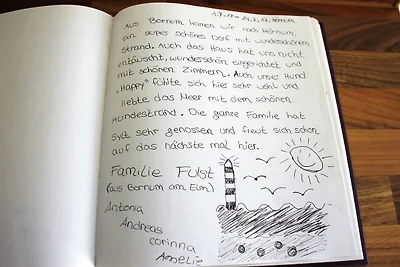 1.7.17 - 14.7.17, Hörnum
Aus Bornum kamen wir nach Hörnum,
ein super schönes Dorf mit wunderschönem
Strand. Auch das Haus hat uns nicht
enttäuscht, wunderschön eingerichtet und
mit schönen Zimmern. Auch unser Hund
„Happy" fühlte sich hier sehr wohl und
liebte das Meer mit dem schönen
Hundestrand. Die ganze Familie hat
Sylt sehr genossen und freut sich schon
auf das nächste mal hier.
Familie Fulst
(aus Bornum am Elm)
Antonia
Andreas
Corinna
Amelie